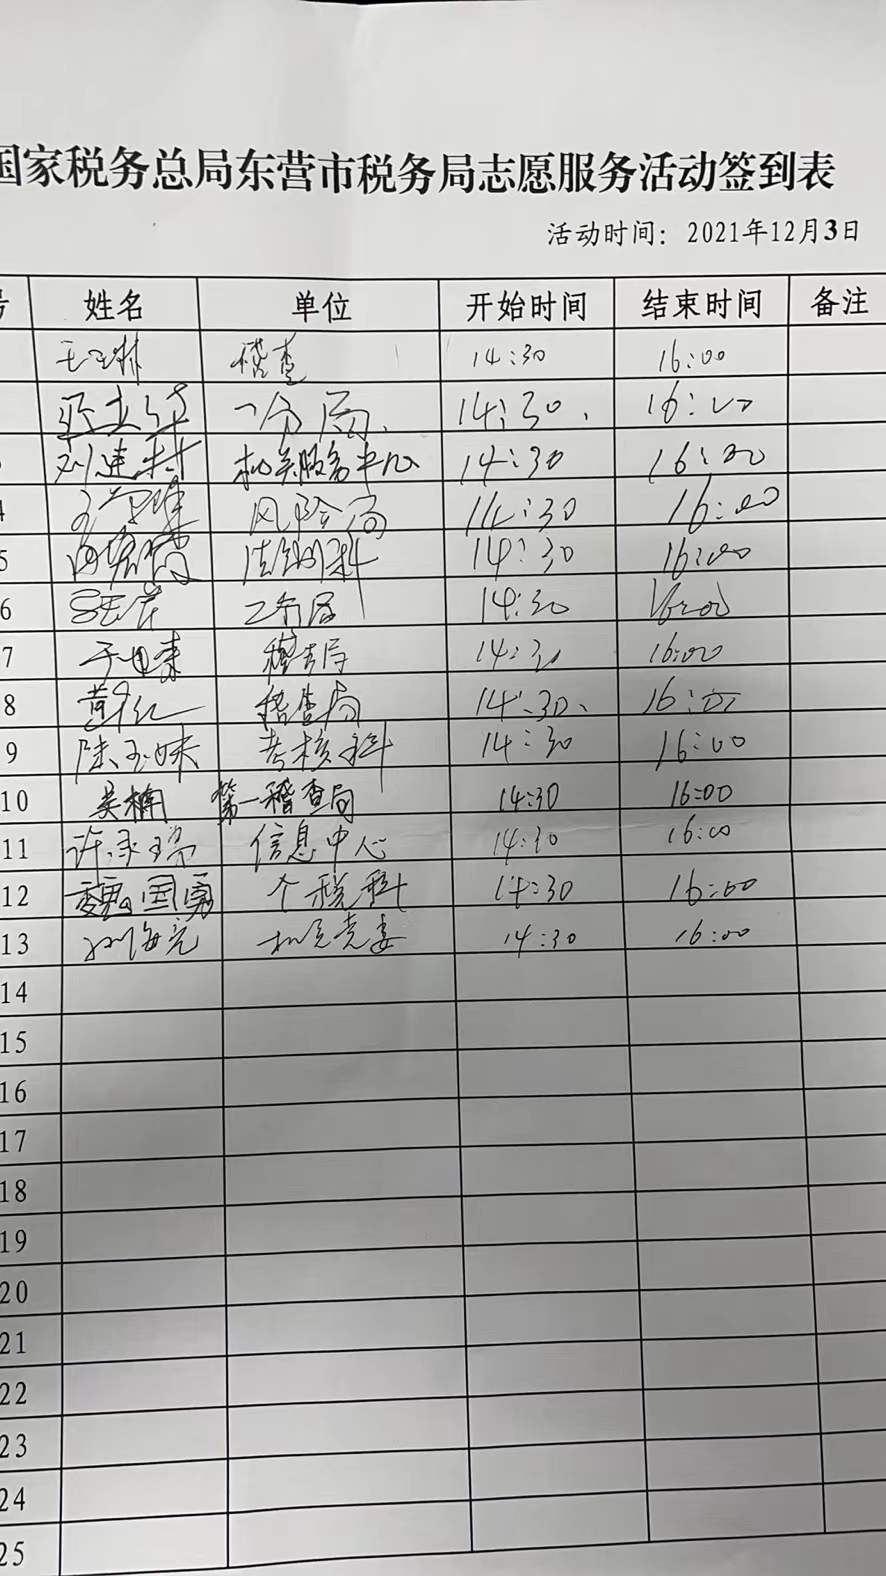 国家税务总局东营市税务局志愿服务活动签到表
活动时间：2021年12月3日
号 姓名 单位 开始时间 结束时间 备注
稽查 14:30 16:00
一分局 14:30 16:00
刘建村 机关服务中心 14:30 16:00
4 风险局 14:30 16:00
5 法制科 14:30 16:00
6 二分局 14:30 16:00
7 稽查局 14:30 16:00
8 稽查局 14:30 16:00
9 陆玉妹 考核科 14:30 16:00
10 吴楠 第一稽查局 14:30 16:00
11 许承瑞 信息中心 14:30 16:00
12 魏国勇 个税科 14:30 16:00
13 孙海亮 机关党委 14:30 16:00
14
15
16
17
18
19
20
21
22
23
24
25